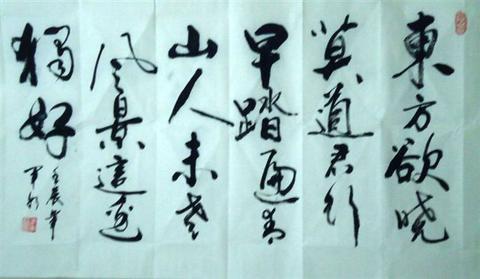 東方欲晓
莫道君行
早踏遍青
山人未老
风景這邊
獨好
壬辰年